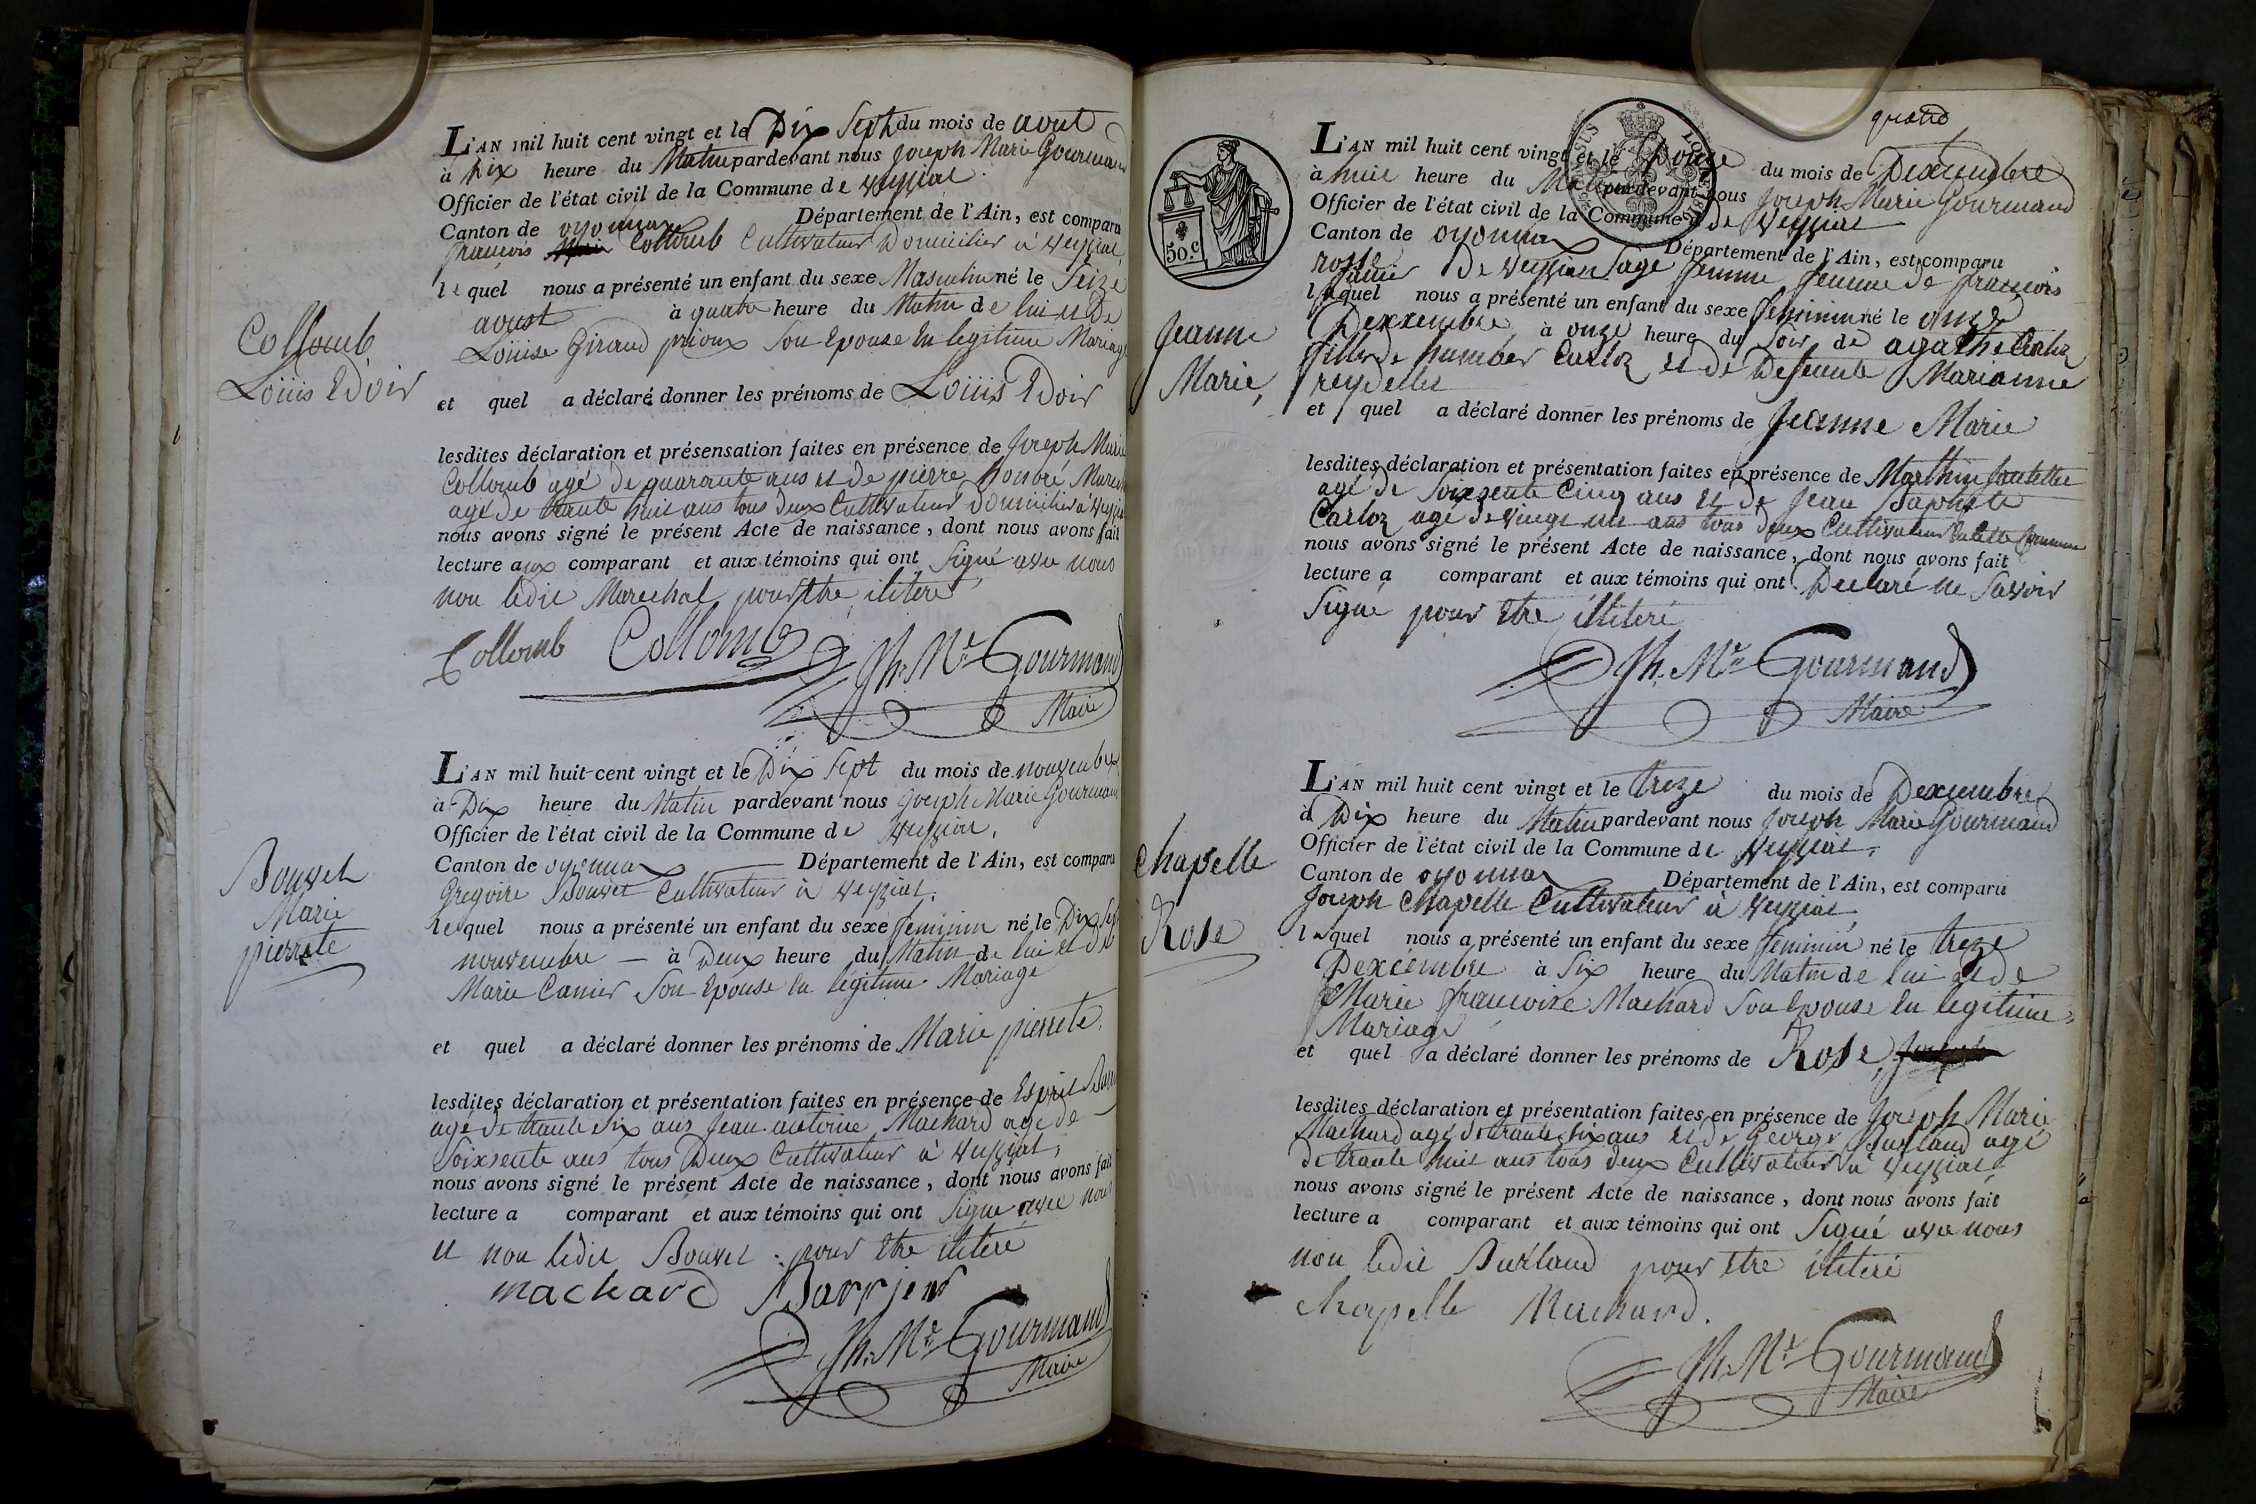 L'AN mil huit cent vingt et le Dix Sept du mois de aout
à Dix heure du Matin pardevant nous Joseph Marie Gourmand
Officier de l'état civil de la Commune de veyziat
Canton de oyonnax Département de l'Ain, est comparu
françois Collomb Cultivateur Domicilier à Veyziat
lequel nous a présenté un enfant du sexe Masculin né le Seize
aoust à quatre heure du Matin de lui et De
Louise Giraud prioux Son Epouse En legitime Mariage
Collomb
Louis Edoir
et quel a déclaré donner les prénoms de Louis Edoir
lesdites déclaration et présensation faites en présence de Joseph Marie
Collomb agé De quarante ans et de pierre honoré Marechal
agé de trante huit ans tous deux Cultivateur Domicilier à Veyziat
nous avons signé le présent Acte de naissance, dont nous avons fait
lecture aux comparant et aux témoins qui ont Signé avec nous
non ledit Marechal pour Etre ilitere
Collomb Collomb Jh. Me. Gourmand
Maire
L'AN mil huit cent vingt et le Dix Sept du mois de nouvembre
à Dix heure du Matin pardevant nous Joseph Marie Gourmand
Officier de l'état civil de la Commune de Veyziat,
Canton de oyonnax Département de l'Ain, est comparu
Gregoire Bouvet Cultivateur à veyziat.
lequel nous a présenté un enfant du sexe feminin né le Dix Sept
nouvembre — à Deux heure du Matin de lui et de
Marie Canier Son Epouse En légitime Mariage
Bouvet
Marie
pierrete
et quel a déclaré donner les prénoms de Marie pierrete.
lesdites déclaration et présentation faites en présence de Esprit
agé de trante Six ans Jean antoine Machard agé de
Soixsente ans tous Deux Cultivateur à veyziat,
nous avons signé le présent Acte de naissance, dont nous avons fait
lecture a comparant et aux témoins qui ont Signé avec nous
et non ledit Bouvet pour Etre ilitéré
machard Barrier
Jh. Me. Gourmand
Maire
quatre
L'AN mil huit cent vingt et le Douze du mois de Dexcembre
à huit heure du Matin pardevant nous Joseph Marie Gourmand
Officier de l'état civil de la Commune de Veyziat
Canton de oyonnax Département de l'Ain, est comparu
rosse de veyziat Sage femme femme de françois
laquel nous a présenté un enfant du sexe feminin né le onze
Dexxembre à onze heure du Soir de agathe Carloz
fille de humber Carloz et de Defeunte Marianne
reydellet
Jeanne
Marie,
et quel a déclaré donner les prénoms de Jeanne Marie
lesdites déclaration et présentation faites en présence de Marthin
agé de Soixsente Cinq ans et De Jean Baptiste
Carloz agé de vingt un ans tous Deux Cultivateur de cette Commune
nous avons signé le présent Acte de naissance, dont nous avons fait
lecture a comparant et aux témoins qui ont Declaré ne Savoir
Signé pour Etre illiteré
Jh. Me. Gourmand
Maire
L'AN mil huit cent vingt et le treze du mois de Dexcembre
à Dix heure du Matin pardevant nous Joseph Marie Gourmand
Officier de l'état civil de la Commune de Veyziat,
Canton de oyonnax Département de l'Ain, est comparu
Joseph Chapelle Cultivateur à Veyziat
lequel nous a présenté un enfant du sexe feminin né le treze
Dexcembre à Six heure du Matin de lui et de
Marie francoise Machard Son Epouse En legitime
Mariage
chapelle
Rose
et quel a déclaré donner les prénoms de Rose,
lesdites déclaration et présentation faites en présence de Joseph Marie
Machard agé de trante Six ans et de George Burland agé
De trante huit ans tous deux Cultivateur à veyziat,
nous avons signé le présent Acte de naissance, dont nous avons fait
lecture a comparant et aux témoins qui ont Signé avec nous
non ledit Burland pour Etre iliteré
Chapelle Machard.
Jh. Me. Gourmand
Maire
50.c